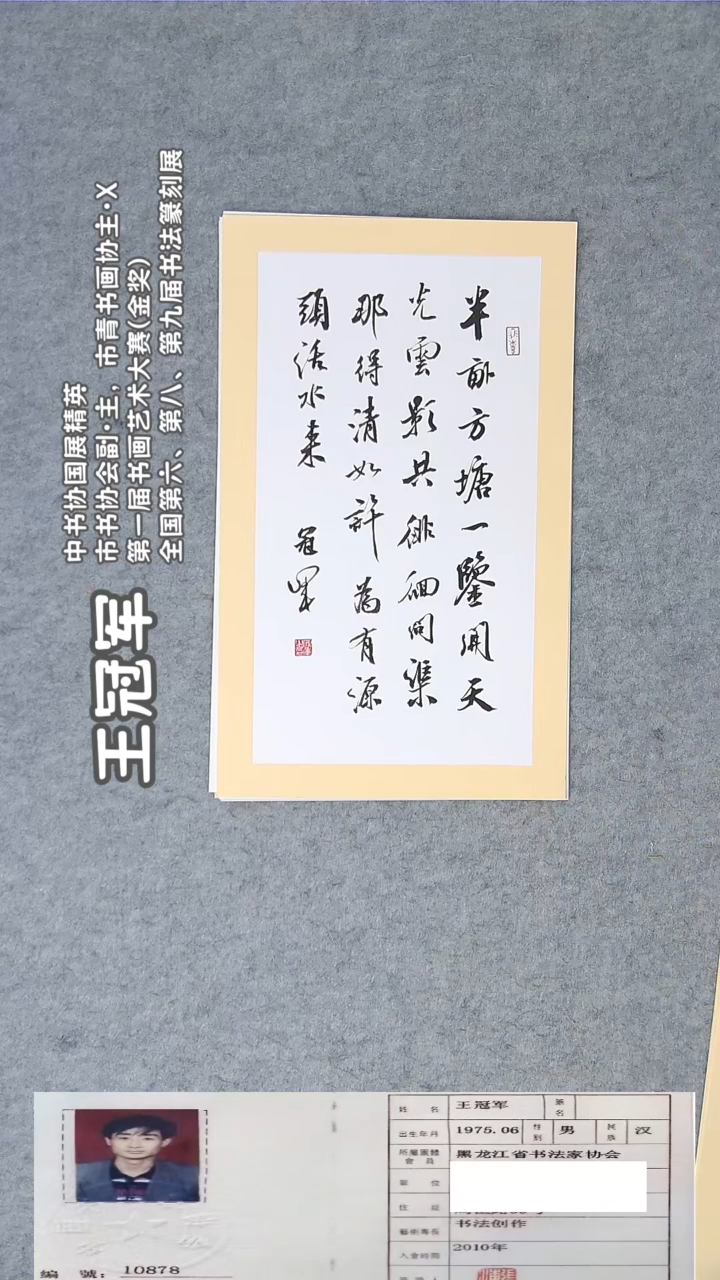 王冠军
中书协国展精英
市书协会副·主，市青书画协主·X
第一届书画艺术大赛(金奖)
全国第六、第八、第九届书法篆刻展
半亩方塘一鑒開天
光雲影共徘徊問渠
那得清如許為有源
頭活水来 冠军
姓 名 王冠军 筆名
出生年月 1975.06 性别 男 民族 汉
所屬團體會員 黑龙江省书法家协会
單 位
住 址
藝術專長 书法创作
入會時間 2010年
編 號：10878